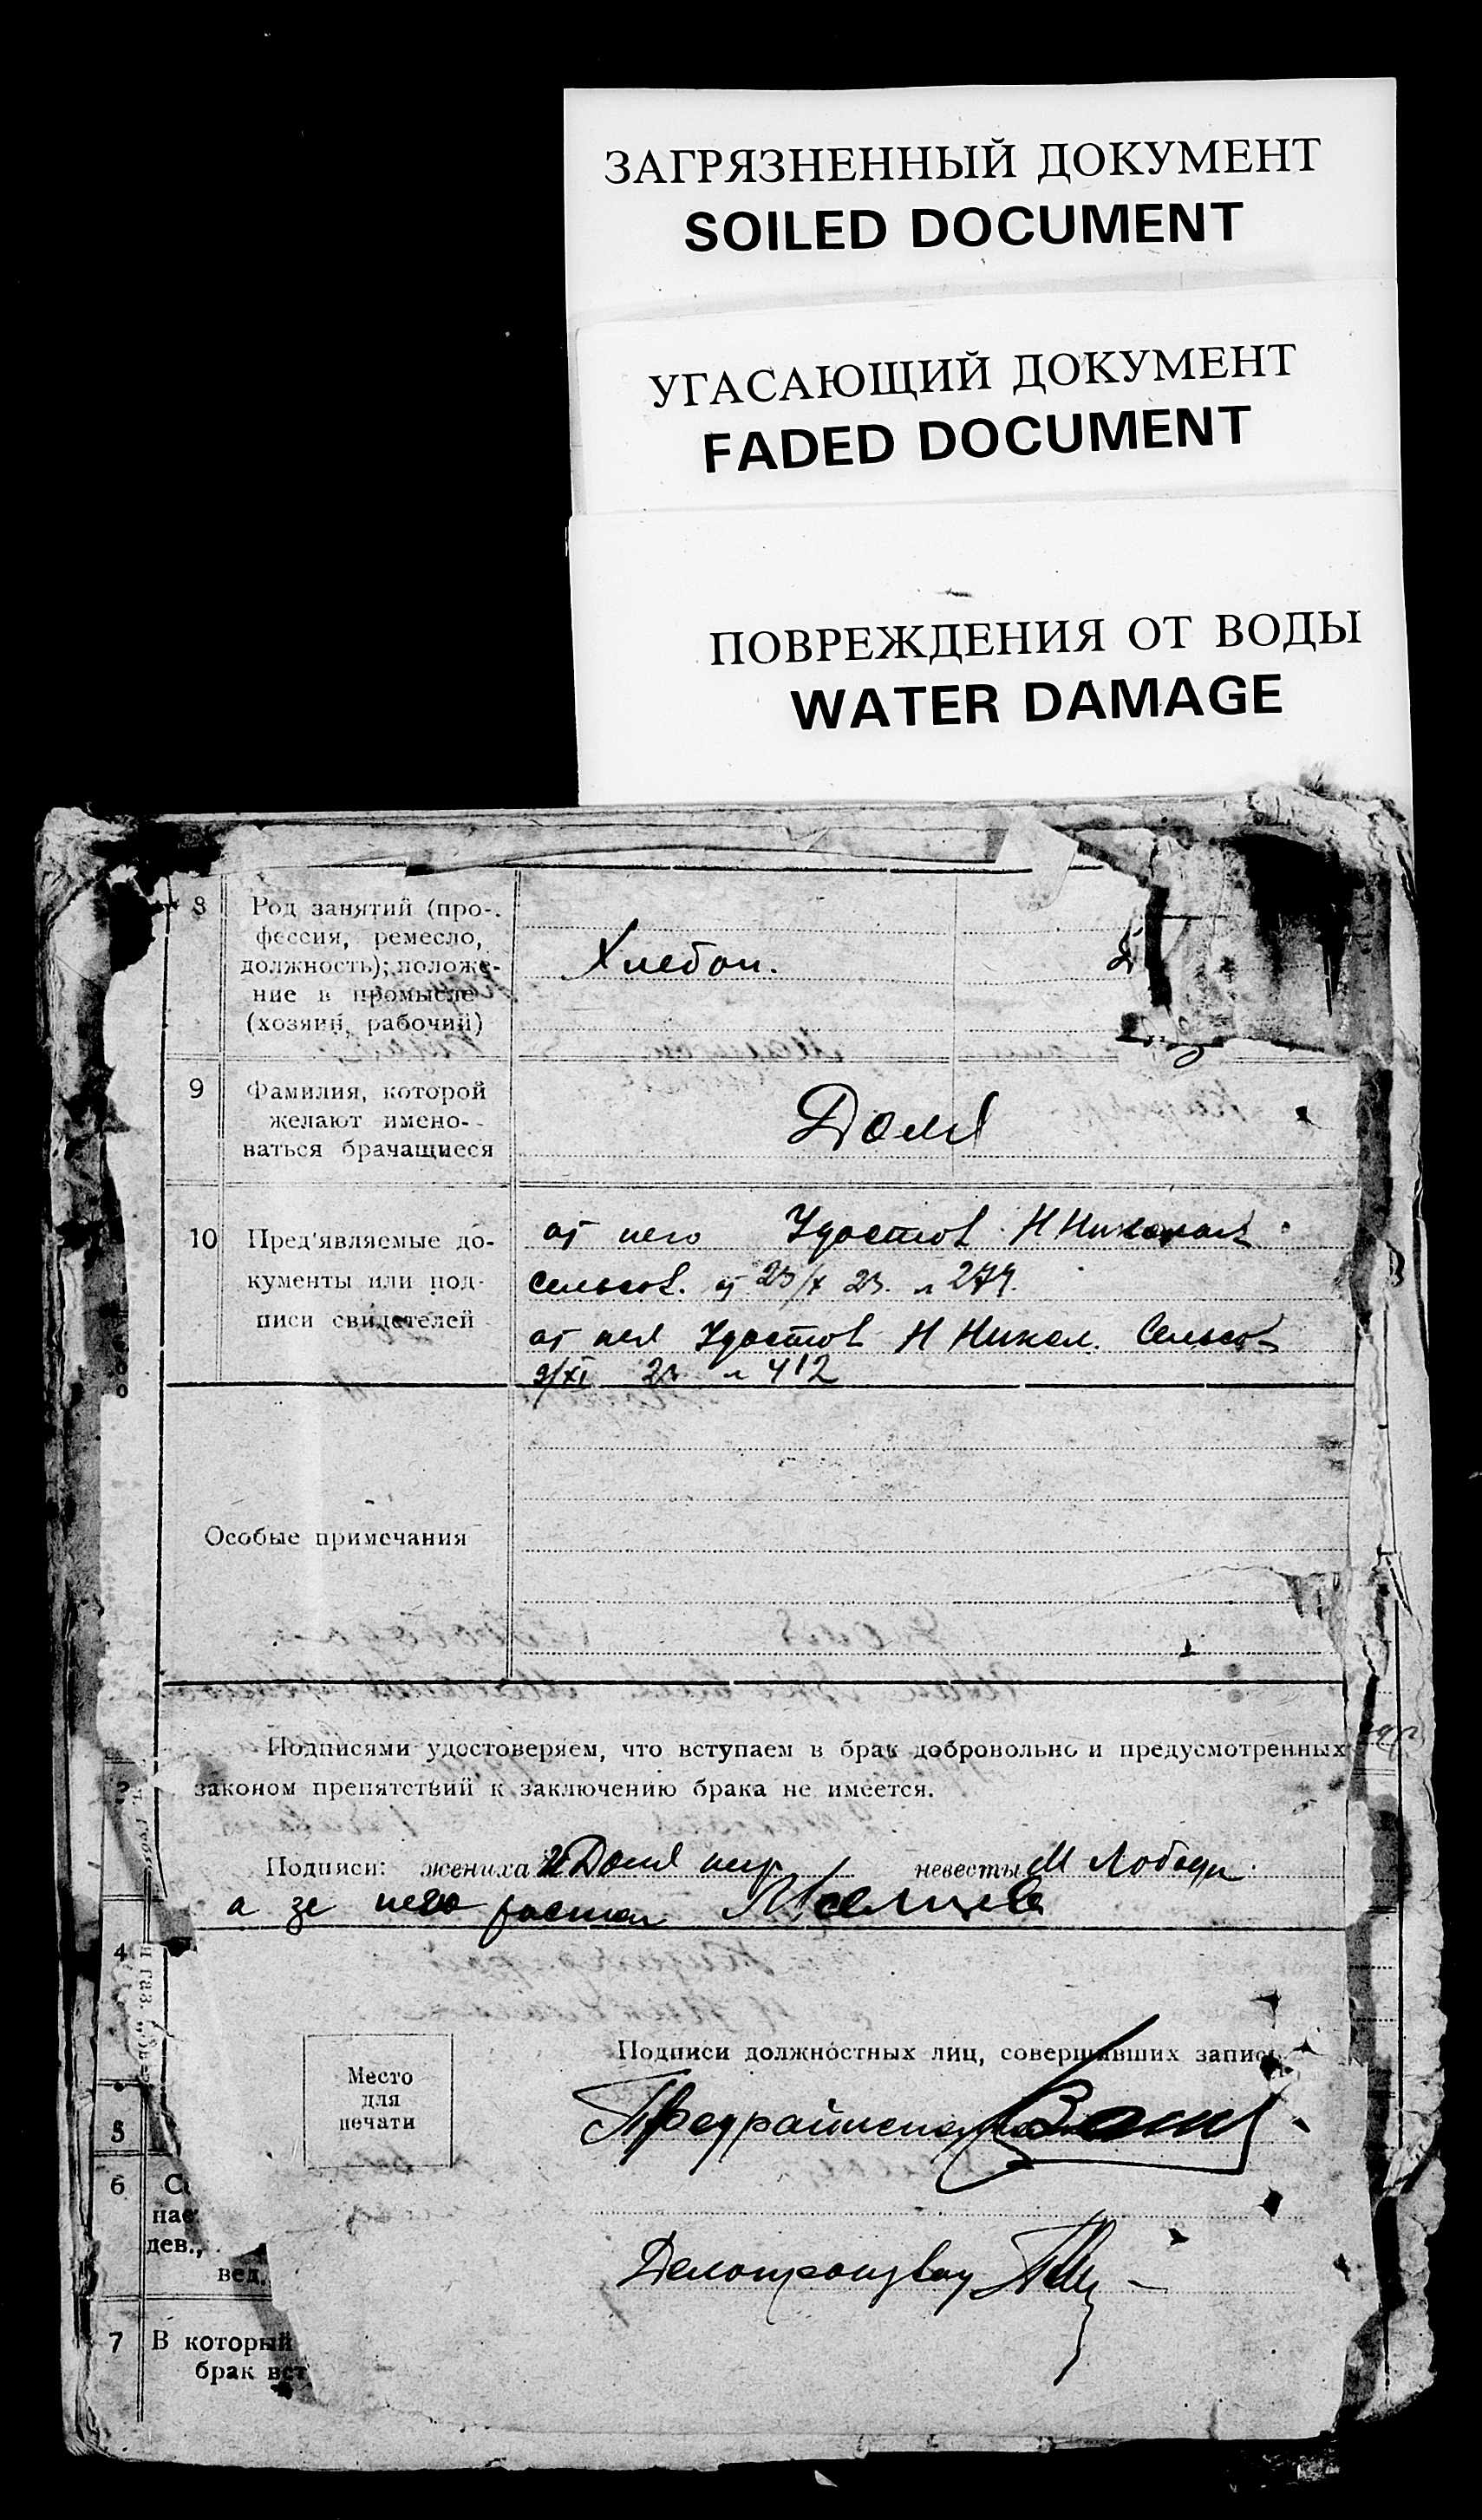 ЗАГРЯЗНЕННЫЙ ДОКУМЕНТ
SOILED DOCUMENT
УГАСАЮЩИЙ ДОКУМЕНТ
FADED DOCUMENT
ПОВРЕЖДЕНИЯ ОТ ВОДЫ
WATER DAMAGE
8 Род занятий (про-
фессия, ремесло,
должность); положе-
ние в промысле
(хозяин, рабочий)
Хлебоп.
9 Фамилия, которой
желают имено-
ваться брачащиеся
Доля
10 Пред'являемые до-
кументы или под-
писи свидетелей
от него Удостов Н Николаев
сельсов. от 23/X 23. № 279.
от нея Удостов Н Никол. Сельсов
9/XI 23. № 412
Особые примечания
Подписями удостоверяем, что вступаем в брак добровольно и предусмотренных
законом препятствий к заключению брака не имеется.
Подписи: жениха И Доля невесты М Лобода
а за него
Место
для
печати
Подписи должностных лиц, совершивших запись
Предрайисполкома
Делопроизвод
4
5
6
нас
дев.,
вед.
7 В который
брак вст